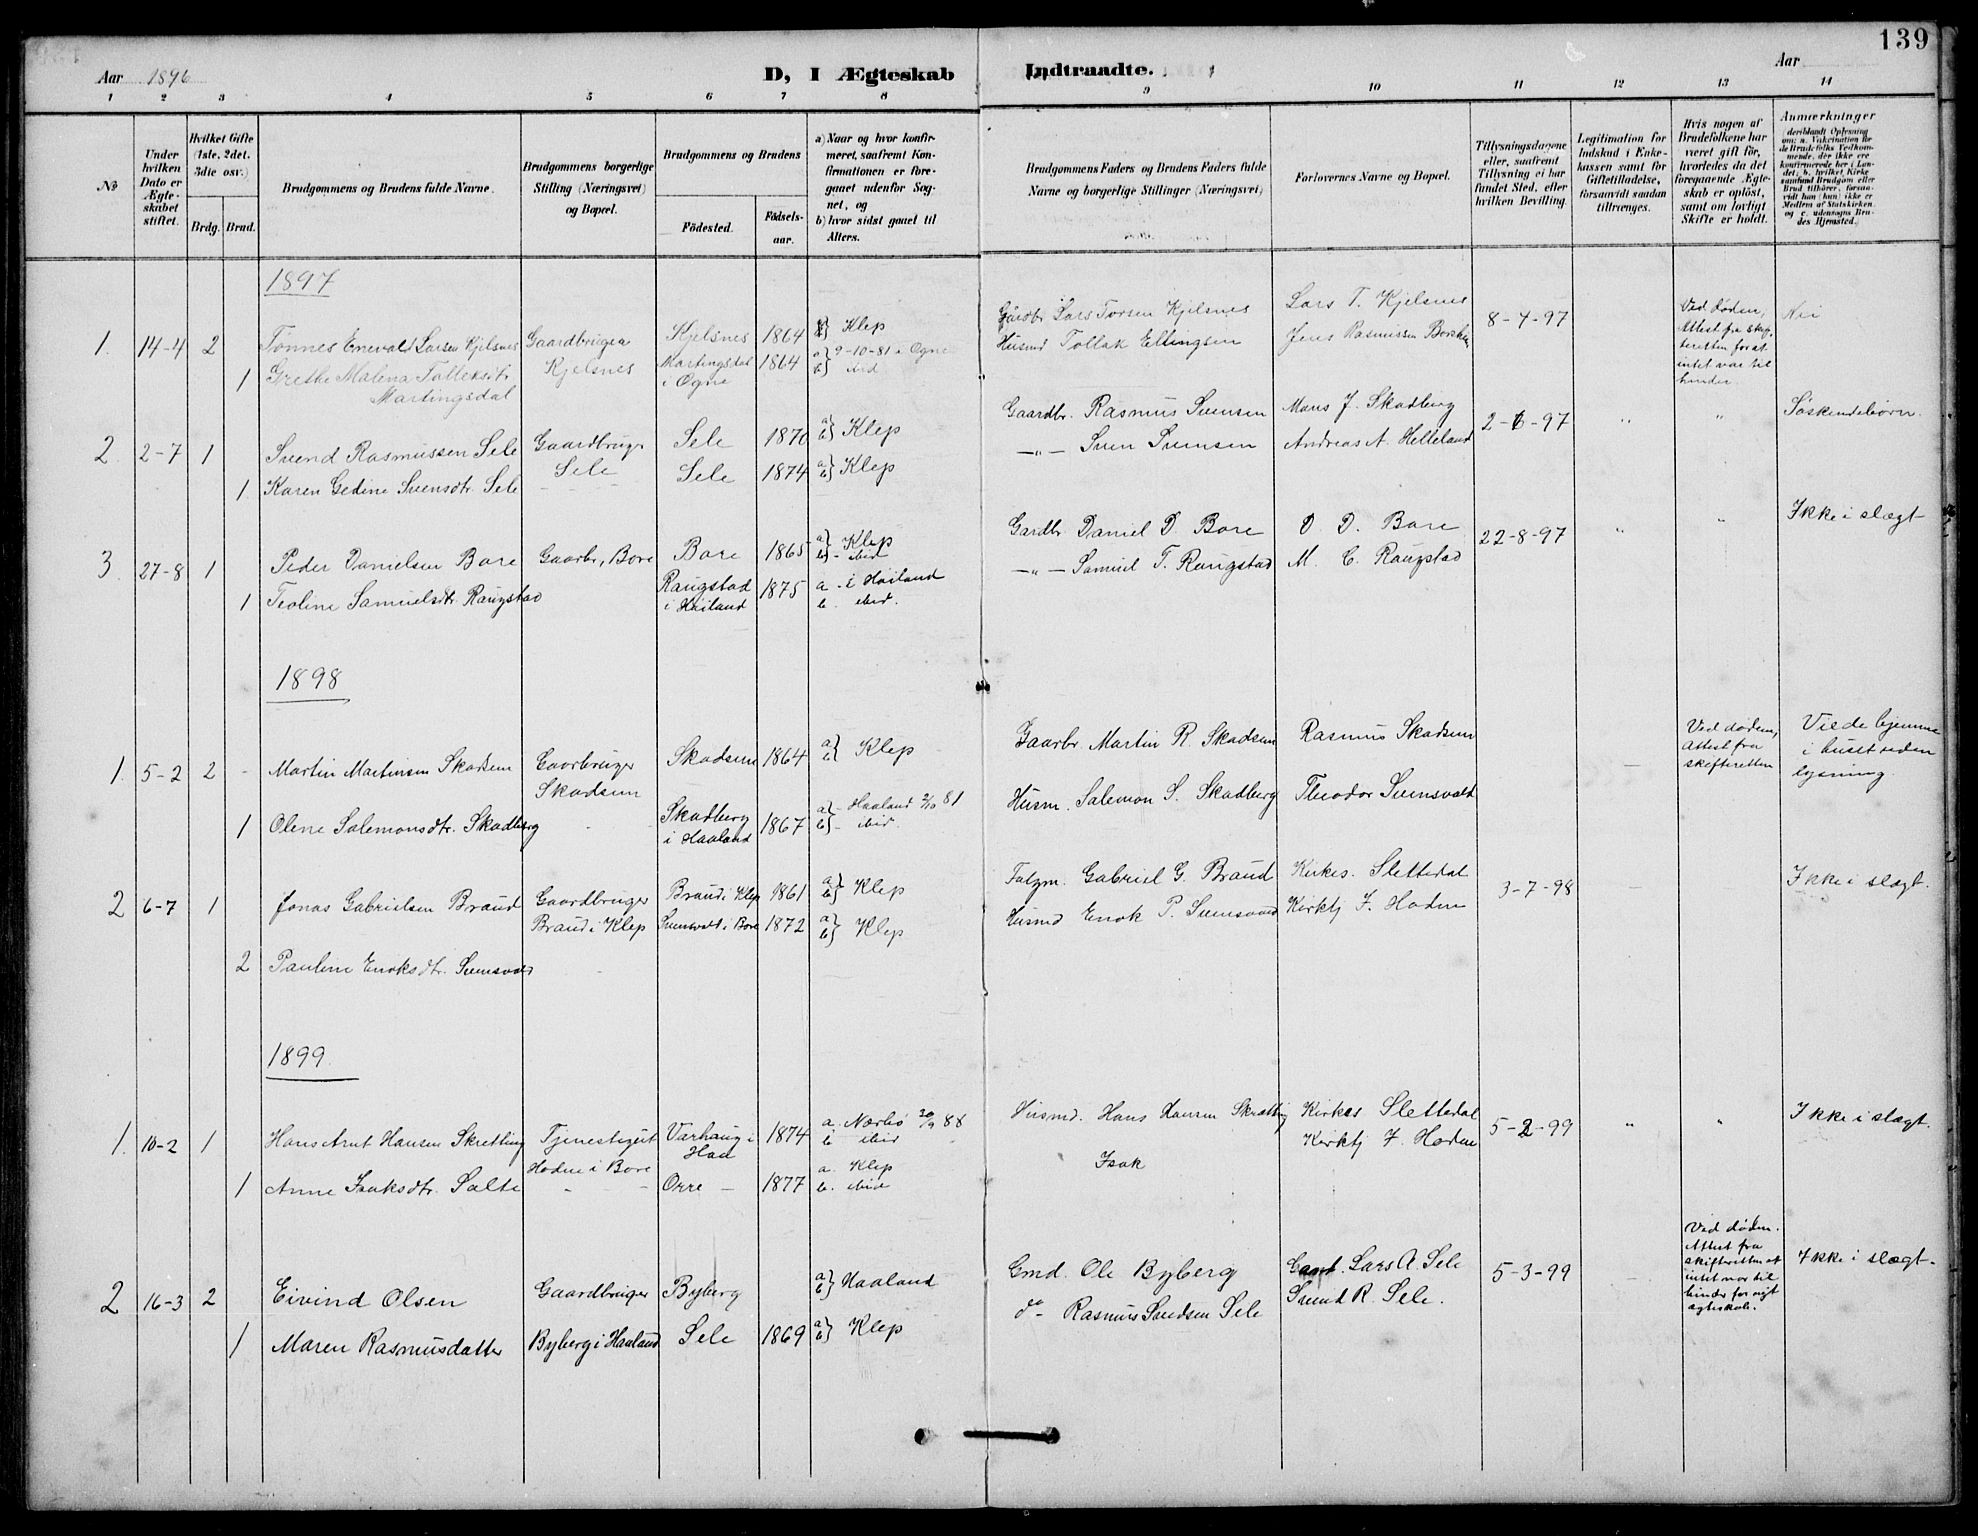 139
Aar 1896
D, I Ægteskab
Indtraadte.
Aar
1 2 3 4 5 6 7 8 9 10 11 12 13 14
No
Under hvilken Dato er Ægteskabet stiftet.
Hvilket Gifte (1ste, 2det, 3die osv.)
Brdg. Brud.
Brudgommens og Brudens fulde Navne.
Brudgommens borgerlige Stilling (Næringsvei) og Bopæl.
Brudgommens og Brudens
Födested.
Födsels-aar.
a) Naar og hvor konfirmeret, saafremt Konfirmationen er foregaaet udenfor Sognet, og
b) hvor sidst gaaet til Alters.
Brudgommens Faders og Brudens Faders fulde Navne og borgerlige Stillinger (Næringsvei)
Forlovernes Navne og Bopæl.
Tillysningsdagene eller, saafremt Tillysning ei har fundet Sted, efter hvilken Bevilling.
Legitimation for Indskud i Enkekassen samt for Giftetilladelse, forsaavidt saadan tiltrænges.
Hvis nogen af Brudefolkene har været gift før, hvorledes da det foregaaende Ægteskab er oplöst, samt om lovligt Skifte er holdt.
Anmærkninger
deriblandt Oplysning om: a. Vakcination for de Brudefolks Vedkommende, der ikke ere konfirmerede her i Landet, b. hvilket Kirkesamfund Brudgom eller Brud tilhörer, forsaavidt han (hun) ikke er Medlem af Statskirken, og c. udensogns Brudes Hjemsted.
1897
1. 14-4 2 Tønnes Enevald Larsen Kjelsnes Gaardbruger Kjelsnes 1864 a) b) Klep Gaardbr Lars Torsen Kjelsnes Lars T. Kjelsnes 8-4-97 Ved døden, Attest fra skifteretten for at intet var til hinder. Nei
1 Grethe Malena Tolleksdtr Kjelsnes Martingsdal i Ogne 1864 a) 9-10-81 i Ogne b) ibid Husmd Tollak Ellingsen Jens Rasmussen
Martingsdal
2. 2-7 1 Svend Rasmussen Sele Gaardbruger Sele 1870 a) b) Klep Gaardbr. Rasmus Svensen Mons J. Skadberg 2-6-97 " " Søskendebørn.
1 Karen Gedine Svensdtr. Sele Sele Sele 1874 a) b) Klep —"— Sven Svensen Andreas A. Helleland
3. 27-8 1 Peder Danielsen Bore Gaarbr., Bore Bore 1865 a) Klep b) - ibid Gardbr Daniel D. Bore D. D. Bore 22-8-97 " " Ikke i slægt
1 Teoline Samuelsdtr. Raugstad Raugstad i Høiland 1875 a - i Høiland b. ibid. —"— Samuel T. Raugstad M. C. Raugstad
1898
1. 5-2 2 - Martin Martinsen Skadsem Gaarbruger Skadsem 1864 a) b) Klep Gaarbr. Martin R. Skadsem Rasmus Skadsem Ved døden, attest fra skifteretten Viede hjemme i huset uden lysning.
Skadsem
1 Olene Salemonsdtr. Skadberg - - Skadberg i Haaland 1867 a) - Haaland 2/10 81 b) - ibid. Husm. Salemon S. Skadberg Theodor Svensvold
2 6-7 1 Jonas Gabrielsen Braud Gaardbruger Braud i Klep 1861 a) b) Klep Gabriel G. Braud Kirkes. Slettedal 3-7-98 - Ikke i slægt.
Braud i Klep i Bore 1872 a) b) Klep Husmd Enok P. Kirktj F. Hodne
2 Pauline Enoksdtr.
1899.
1. 10-2 1 Hans Arnt Hansen Skretting Tjenestegut Varhaug i Haa 1874 a. Nærbø 30/9 88 b ibid Husmd. Hans Hansen Skretting Kirkes Slettedal 5-2-99 " " Ikke i slægt.
Hodne i Bore Kirktj F. Hodne
1 Anne Isaksdtr. Salte - - Orre - 1877 a. Klep b. ibid Isak
2 16-3 2 Eivind Olsen Gaardbruger Byberg a) b) Haaland Gmd. Ole Byberg Lars A. Sele 5-3-99 - Ved døden. Attest fra skifteretten at intet var til hinder for nyt ægteskab. Ikke i slægt.
1 Maren Rasmusdatter Byberg i Haaland Sele 1869 a) b) Klep do - Rasmus Svendsen Sele Svend R. Sele.